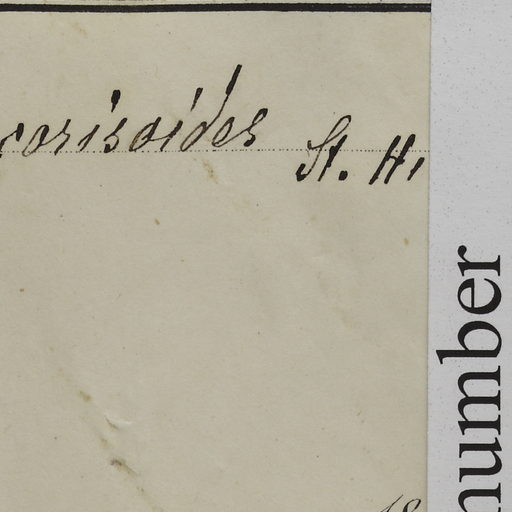 corisoides St. H.
number